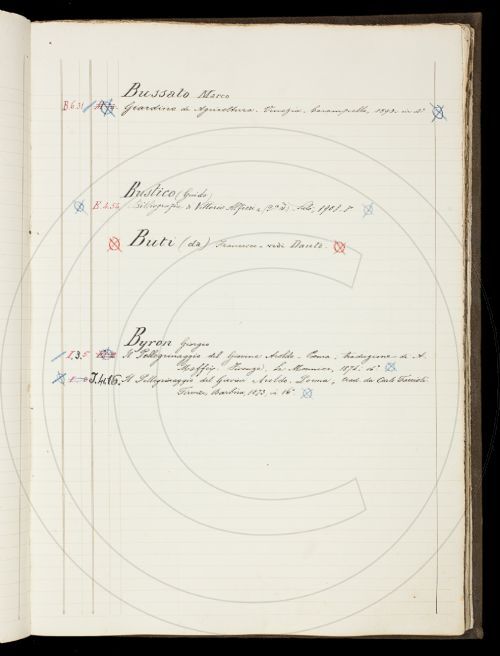 Bussato Marco
B.6.31 Giardino di Agricoltura. Venezia, Carampello, 1593. in 4°
Bustico (Guido)
B.4.56 Bibliografia di Vittorio Alfieri (3ª ed) Salò, 1908. 8°
Buti (da) Francesco - vedi Dante.
Byron Giorgio
I.3.5 Il Pellegrinaggio del Giovine Aroldo. Poema, traduzione di A.
Maffei. Firenze, Le Monnier, 1874. 16°
I.4.16. Il Pellegrinaggio del Giovin Aroldo. Poema, trad. da Carlo
Firenze, Barbèra, 1873, in 16°